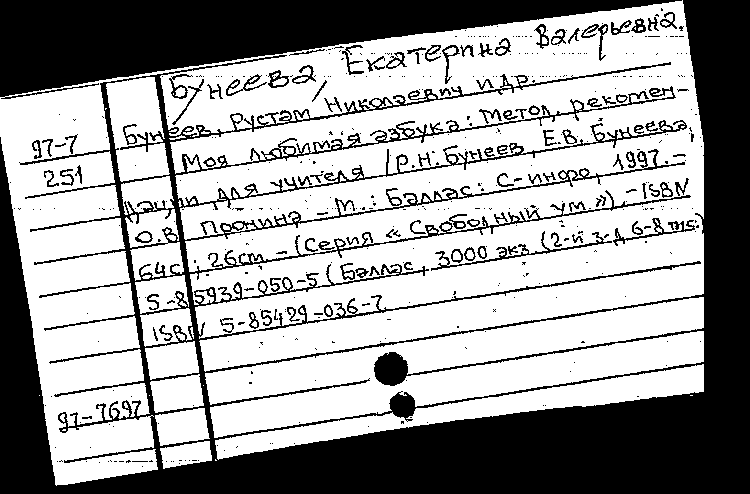 Бунеева, Екатерина Валерьевна.
Бунеев, Рустам Николаевич и др.
97-7
251
Моя любимая азбука: Метод. рекомен-
дации для учителя / Р.Н. Бунеев, Е.В. Бунеева,
О.В. Пронина - М.: Баласс: С-инфо, 1997. -
64с.; 26см - (Серия «Свободный ум»). - ISBN
5-85939-050-5 (Баласс, 3000 экз. (2-й з-д 6-8 тыс.)
ISBN 5-85429-036-7
97-7697